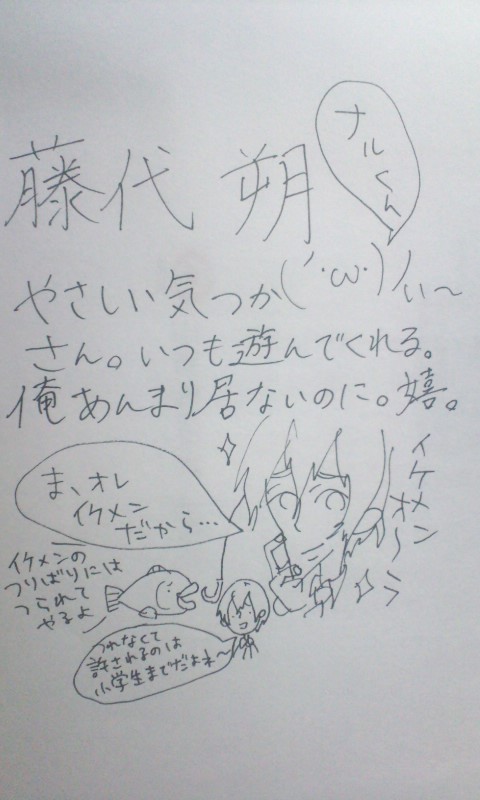 藤代 朔
ナルくん
やさしい気つか(´・ω・)ノぃ～
さん。いつも遊んでくれる。
俺あんまり居ないのに。嬉。
ま、オレ
イケメン
だから…
イケメン
オ～ラ
イケメンの
つりばりには
つられて
やるよ
つれなくて
許されるのは
小学生までだよネ～